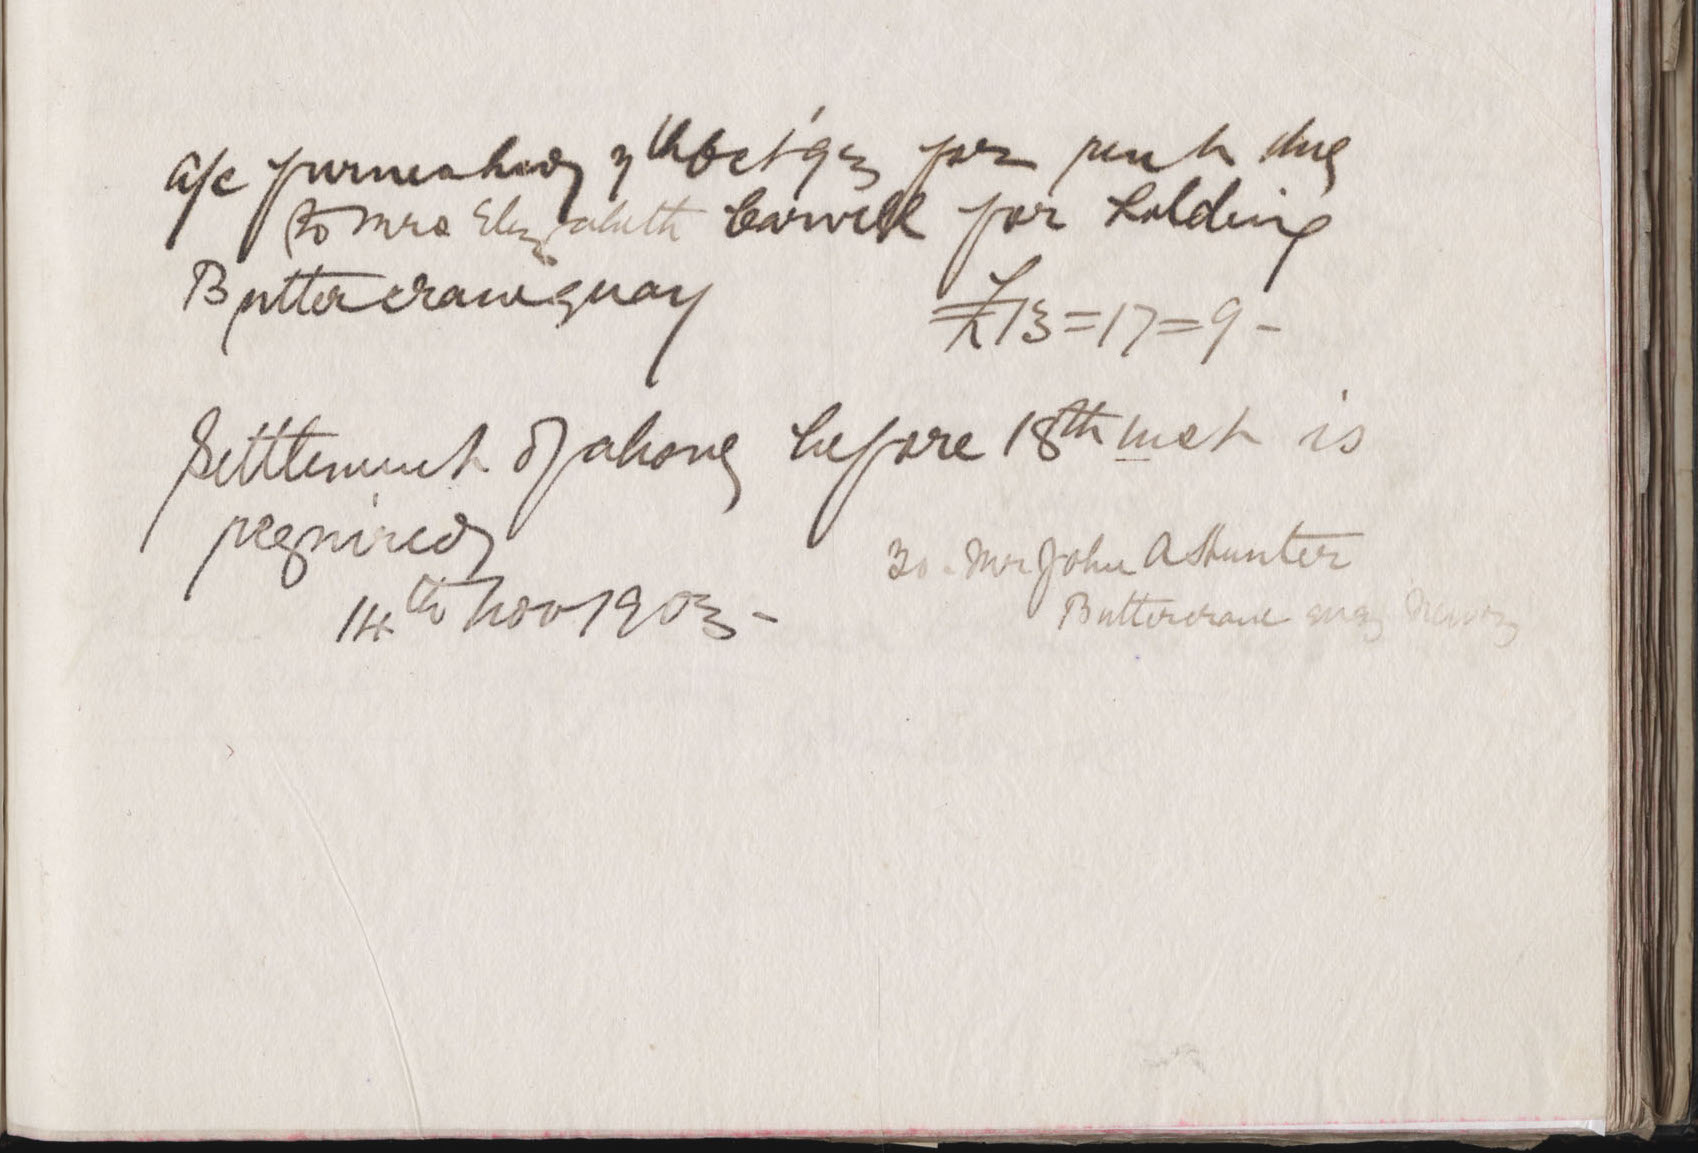 a/c furnished 7th Oct '03 for rent due
to Mrs Elizabeth Carvill for holding
Buttercrane quay £13=17=9-
Settlement of above before 18th inst is
required
14th Nov 1903-
To. Mr John A Hunter
Buttercrane quay Newry